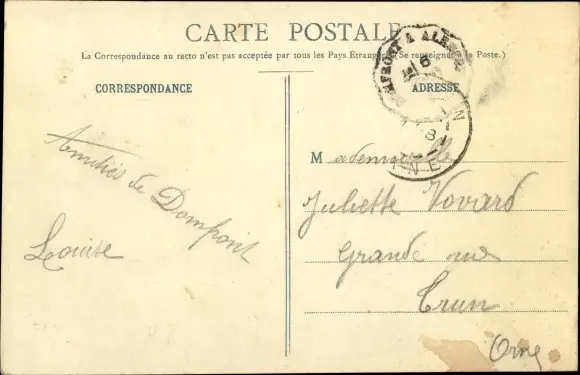 CARTE POSTALE
La Correspondance au recto n'est pas acceptée par tous les Pays Etrangers (Se renseigner à la Poste.)
CORRESPONDANCE
ADRESSE
Amitiés de Domfront
Louise
Mademoiselle
Juliette Vovard
Grande rue
Trun
Orne